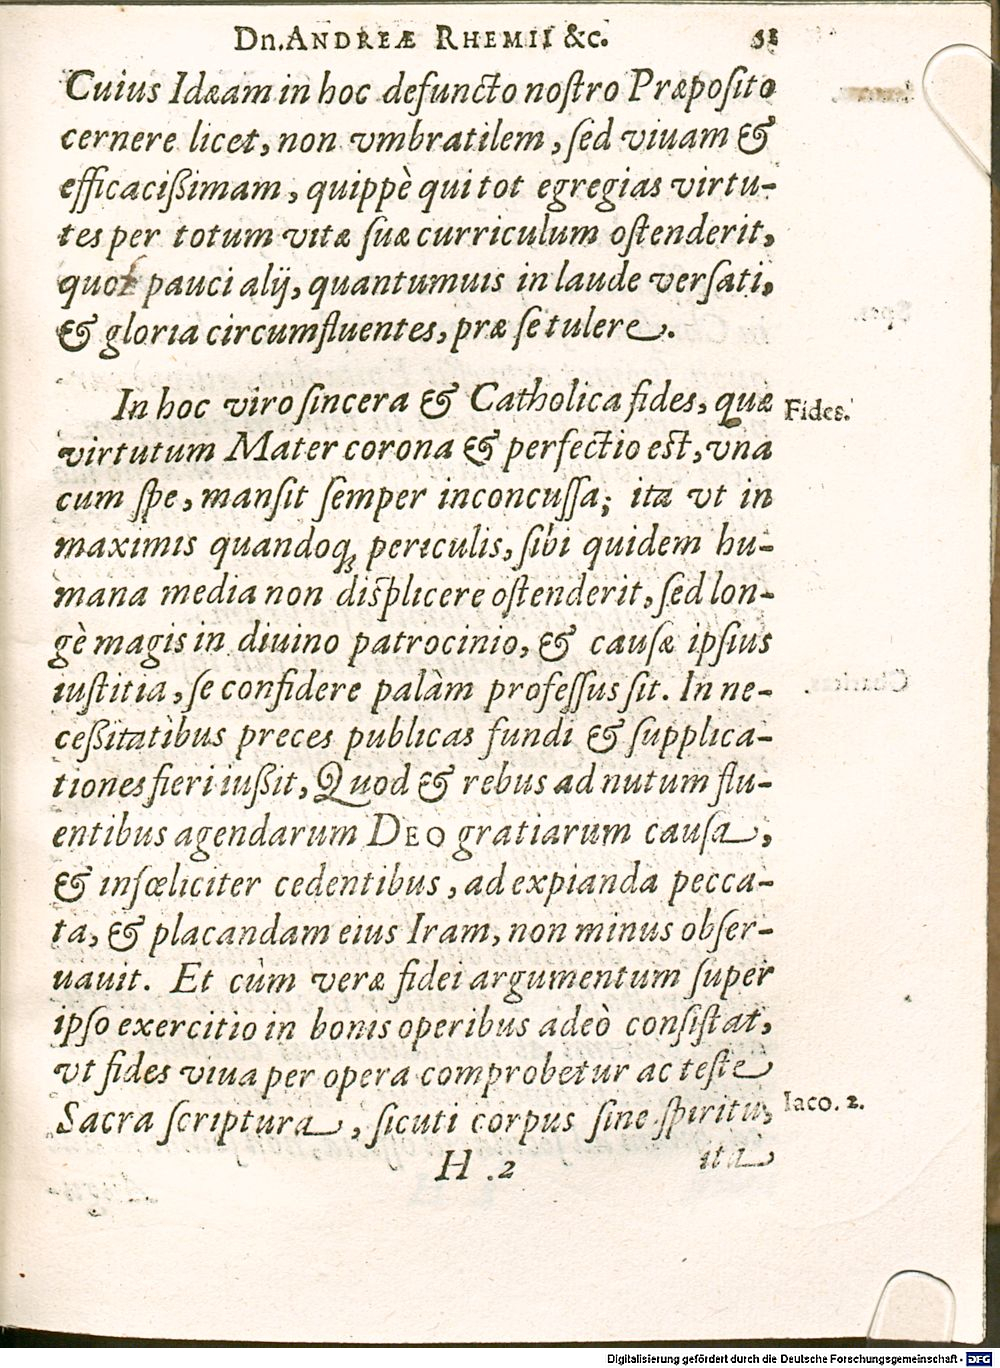 Dn. ANDREÆ RHEMII &c. 51
Cuius Idæam in hoc defuncto nostro Præposito
cernere licet, non vmbratilem, sed viuam &
efficacißimam, quippè qui tot egregias virtu-
tes per totum vitæ suæ curriculum ostenderit,
quot pauci alij, quantumuis in laude versati,
& gloria circumfluentes, præ se tulere.
In hoc viro sincera & Catholica fides, quæ
Fides.
virtutum Mater corona & perfectio est, vna
cum spe, mansit semper inconcussa; ita vt in
maximis quandoq; periculis, sibi quidem hu-
mana media non displicere ostenderit, sed lon-
gè magis in diuino patrocinio, & causæ ipsius
iustitia, se confidere palàm professus sit. In ne-
ceßitatibus preces publicas fundi & supplica-
tiones fieri iußit, Quod & rebus ad nutum flu-
entibus agendarum DEO gratiarum causa,
& infœliciter cedentibus, ad expianda pecca-
ta, & placandam eius Iram, non minus obser-
uauit. Et cùm veræ fidei argumentum super
ipso exercitio in bonis operibus adeò consistat,
vt fides viua per opera comprobetur ac teste
Sacra scriptura, sicuti corpus sine spiritu,
Iaco. 2.
H 2 ita
Digitalisierung gefördert durch die Deutsche Forschungsgemeinschaft - DFG